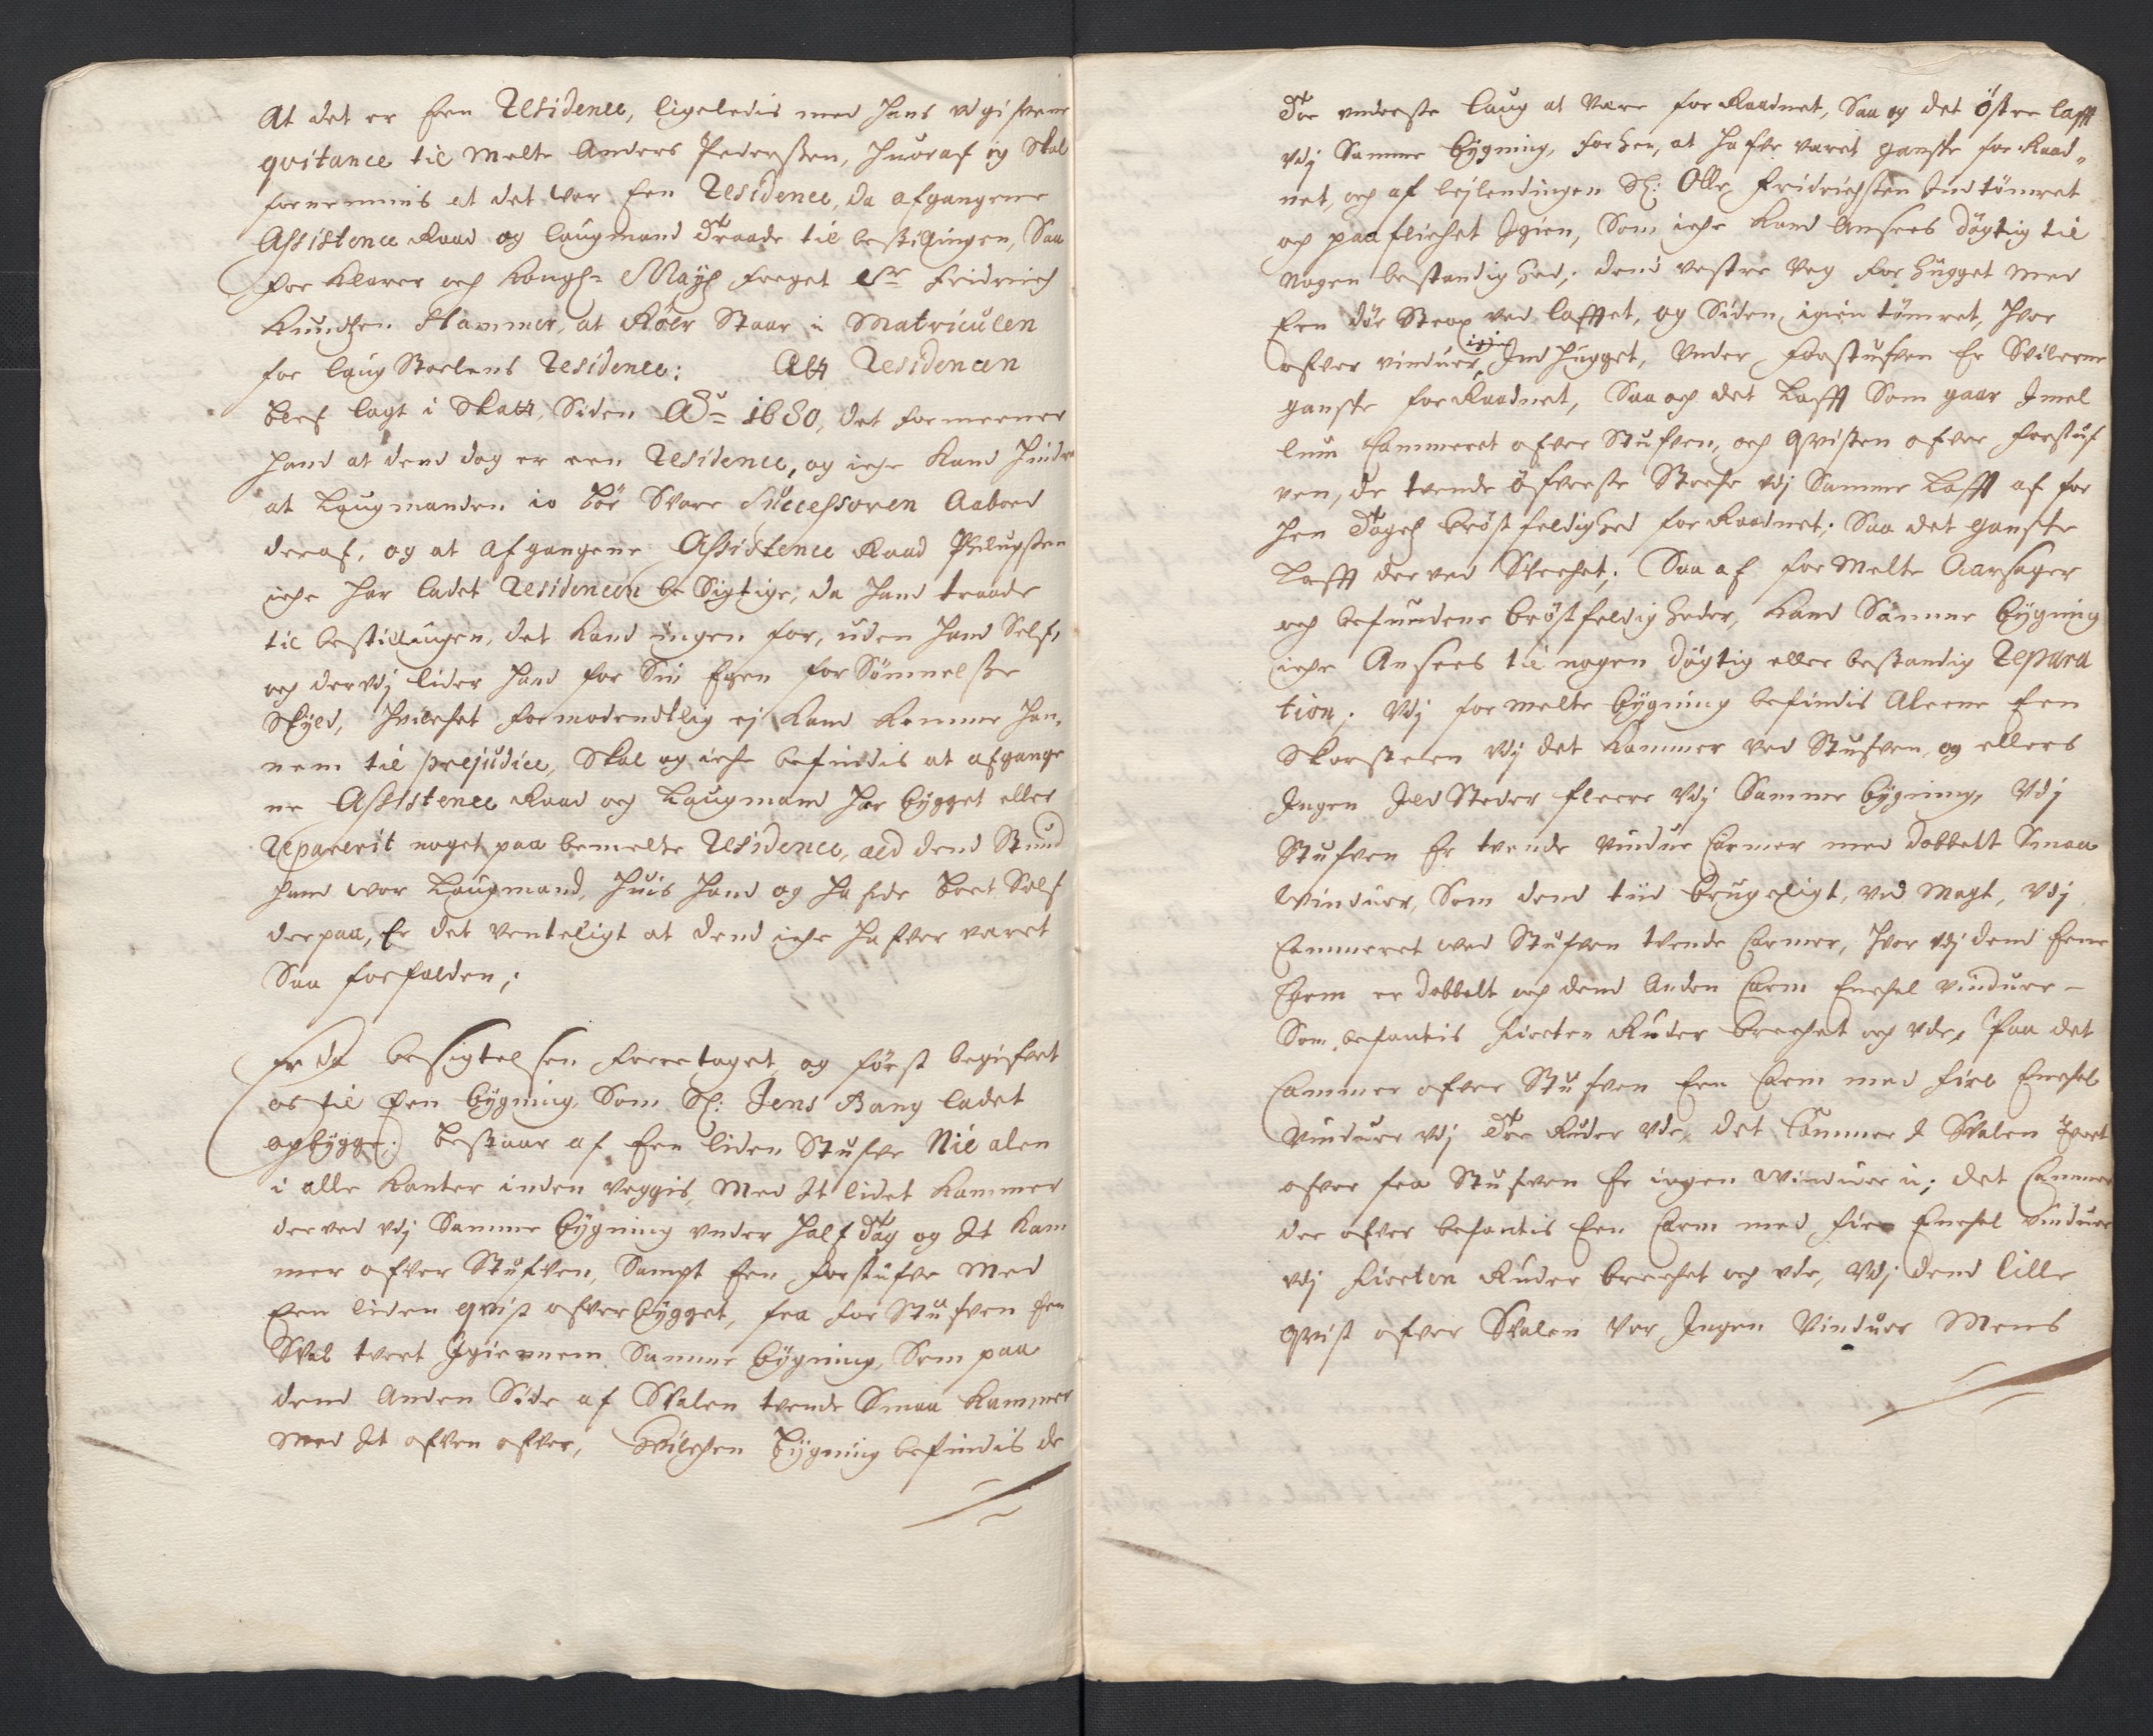 At det er Een Residence, ligeledis med hans udgifvene
qvitance til Melte Anders Pederssen, huoraf og Skal
fornemmis at det var Een Residence, da afgangene
Assistence Raad og Laugmand Traade til bestillingen, Saa
for Klarer och Kongl: Mayts foeget Sr Fridrich
Knudsen Hammer, at Röer Staar i Matriculen
for Laug Stoelens Residence: Att Residencen
blef lagt i Skatt, Siden Ao 1680, det formeener
hand at dend dog er een Residence, og iche kand hindre
at Laugmanden io bör Svare Successoren Aaboed
deraf, og at afgangene Assistence Raad Philupssen
iche har ladet Residencen be Sigtige, da hand traade
til bestillingen, det kand ingen for, uden hand Self,
och derudj lider hand for Sin Egen forSömmelsse
Skyld, hvilchet formodendtlig ej kand komme han,
nem til prejudice, Skal og iche befindis at afgange
ne Assistence Raad och Laugmand har bygget eller
Reparerit noget paa bemelte Residence, all dend Stund
hand var Laugmand, huis hand og hafde boet Self
der paa, Er det venteligt at dend iche hafver varet
Saa forfalden;
Er da besigtelsen foretaget, og först begifvet
os til Een bygning, Som Sl: Jens Bang ladet
opbygge; bestaar af Een liden Stufve Nie alen
i alle Kanter inden veggis, Med It lidet Kammer
der ved udj Samme bygning under half Tag og It Kam
mer ofver Stufven, Sampt Een forstufve Med
Een liden qvist ofverbygget, fra forStufven Een
Sval tvert Igiennem Samme bygning, Som paa
dend Anden Side af Svalen tvende Smaa Kammer
Med It ofven ofver, hvilchen bygning befindis de
Toe underste laug at være forRaadnet, Saa og det östre lafft
udj Samme bygning, forhen, at hafve varet gansche for Raad,
net, och af leilendingen Sl: Olle Fridrichssen Ind tömret
och paa flichet Igien, Som iche kand Ansees dögtig til
Nogen bestandighed; dend vestre veg forhugget med
Een dör Strax ved lafftet, og Siden, igien tömret, hvor
igien
ofver vinduer Ind hugget, Under forstufven Er Svillerne
gansche for Raadnet, Saa och det Lafft Som gaar Imel
lum Cammeret ofver Stufven, och Qvisten ofver forstuf
ven, de tvende öfverste Stoche udj Samme Lafft af for
hen Tagets bröstfeldighed for Raadnet; Saa det gansche
Lafft derved Svechet; Saa af for Melte Aarsager
och befundene bröstfeldigheder, kand Samme bygning
iche Ansees til nogen dögtig eller bestandig Repara
tion; Udj formelte bygning befindis Alleene Een
Skorsteen Udj det Kammer ved Stufven, og ellers
Ingen Ild Steder fleere Udj Samme bygning, Udj
Stufven Er tvende Vindue Carmer med dobbelt Smaa
Winduer, Som dend tiid brugeligt, ved Magt, Udj
Cammeret ved Stufven tvende Carmer, hvor Udj dend Eene
Carm er dobbelt och dend Anden Carm Enchel vinduer –
Som befantis Fiorten Ruder brechet och Ude, Paa det
Cammer ofver Stufven Een Carm med fiire Enchel
Vinduer Udj Toe Ruder Ude, det Cammer i Svalen tvert
ofver fra Stufven Er ingen Winduer i; det Cammer
der ofver befantis Een Carm med fire Enchel vinduer
udj Fiorten Ruder brechet och ude, Udj dend lille
qvist ofver Svalen Var Ingen Vinduer Mens